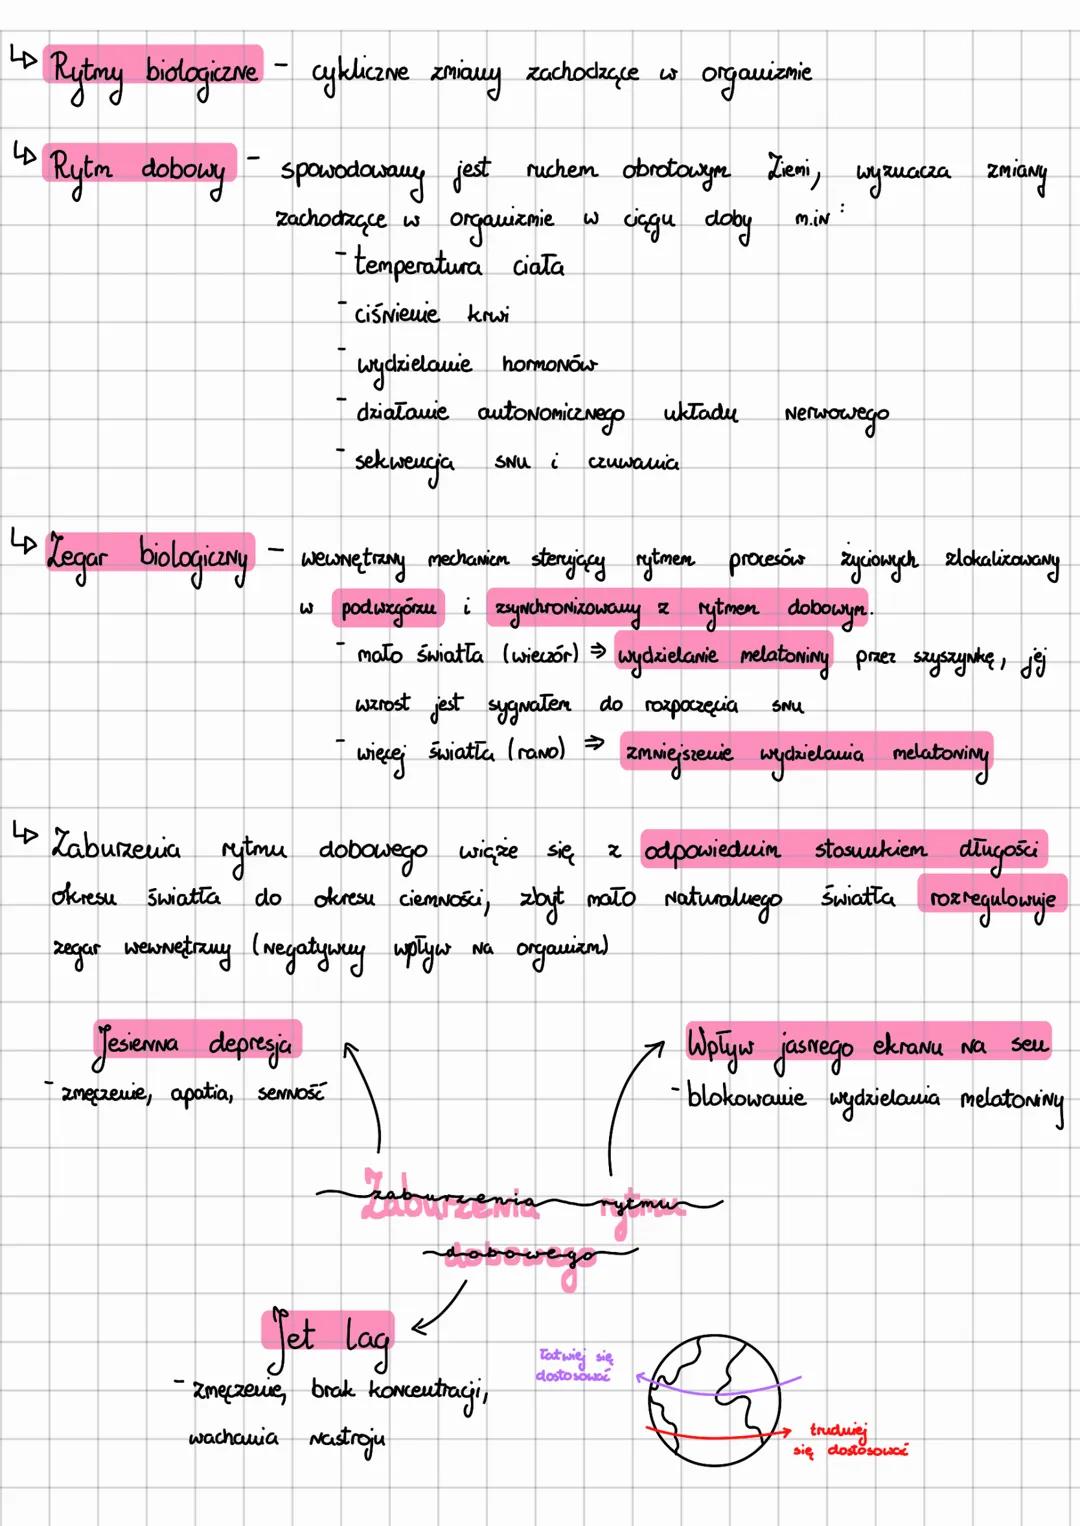 Rytmy biologiczne - cykliczne zmiany zachodzące w organizmie
Rytm dobowy - spowodowany jest ruchem obrotowym Ziemi, wyznacza zmiany
zachodzące w organizmie w ciągu doby m.in:
- temperatura ciała
- ciśnienie krwi
- wydzielanie hormonów
- działanie autonomicznego układu nerwowego
- sekwencja snu i czuwania
Zegar biologiczny - wewnętrzny mechanizm sterujący rytmem procesów życiowych zlokalizowany
w podwzgórzu i zsynchronizowany z rytmem dobowym.
- mało światła (wieczór) ⇒ wydzielanie melatoniny przez szyszynkę, jej
wzrost jest sygnałem do rozpoczęcia snu
- więcej światła (rano) ⇒ zmniejszenie wydzielania melatoniny
Zaburzenia rytmu dobowego wiąże się z odpowiednim stosunkiem długości
okresu światła do okresu ciemności, zbyt mało naturalnego światła rozregulowuje
zegar wewnętrzny (negatywny wpływ na organizm)
Jesienna depresja
- zmęczenie, apatia, senność
Wpływ jasnego ekranu na sen
- blokowanie wydzielania melatoniny
Zaburzenia rytmu
dobowego
Jet lag
- zmęczenie, brak koncentracji,
wachania nastroju
łatwiej się
dostosować
trudniej
się dostosować